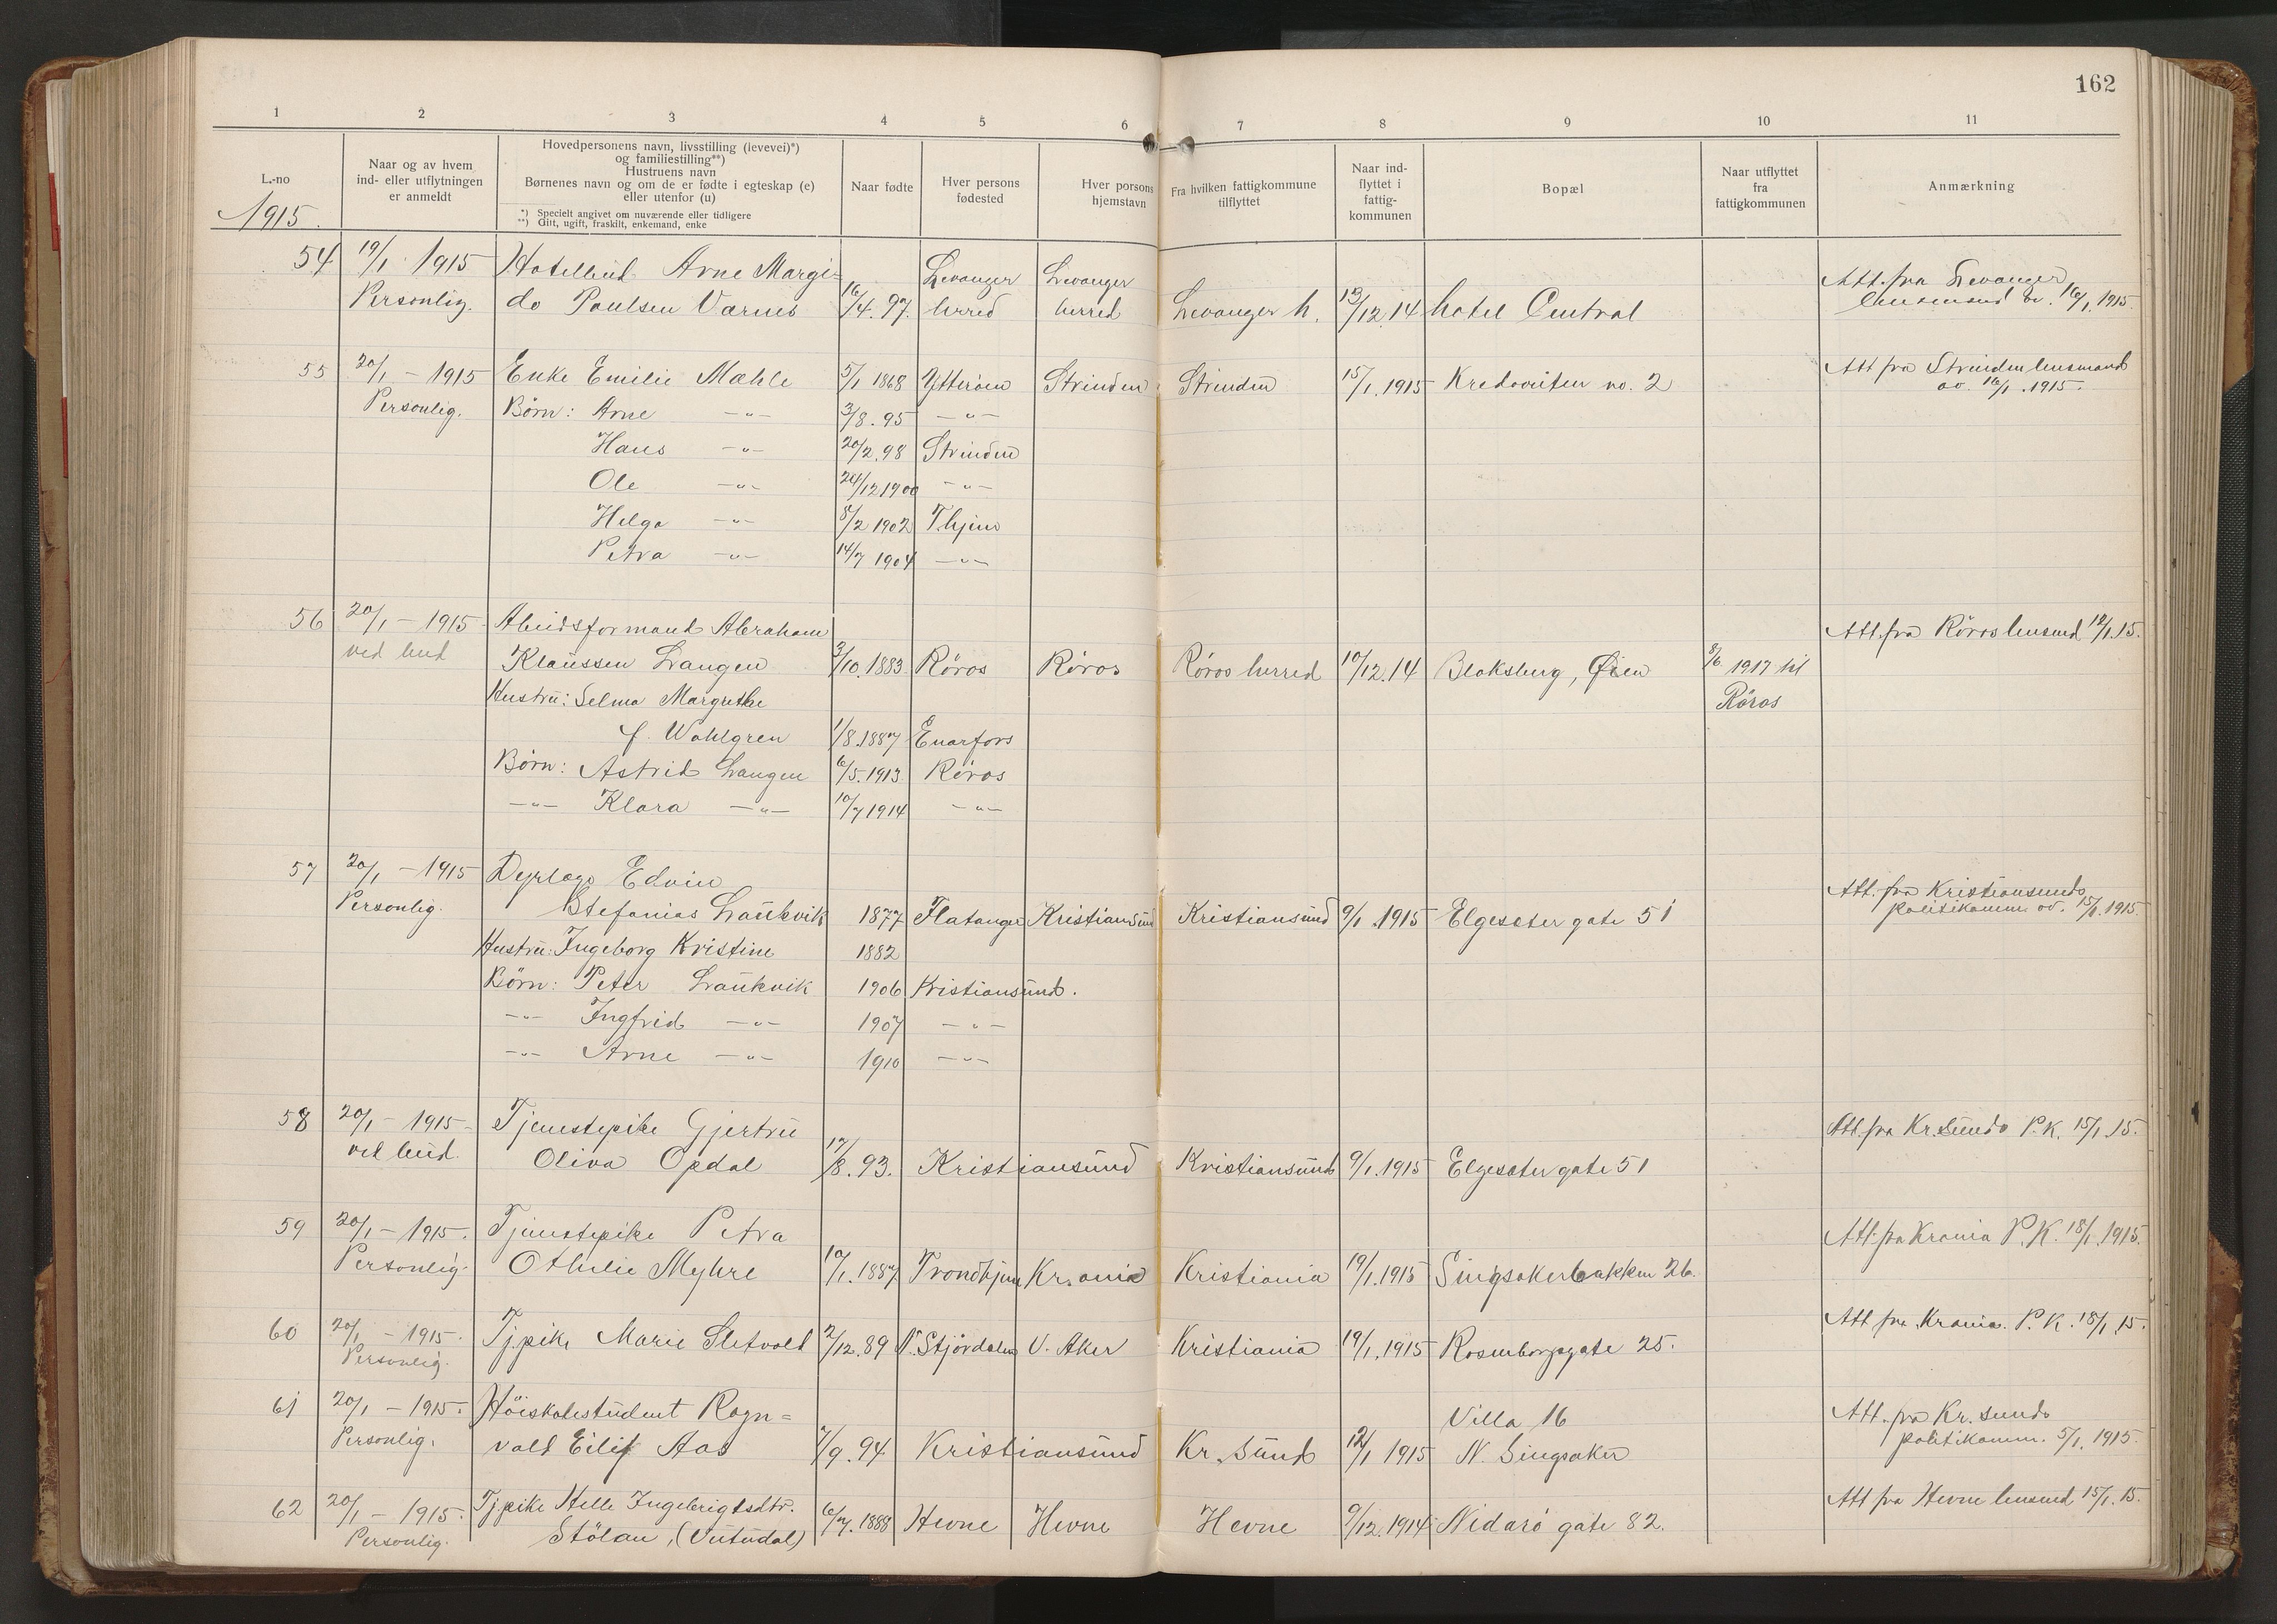 162
1 2 3 4 5 6 7 8 9 10 11
L.-no
1915.
Naar og av hvem
ind- eller utflytningen
er anmeldt
Hovedpersonens navn, livsstilling (levevei)*)
og familiestilling**)
Hustruens navn
Børnenes navn og om de er fødte i egteskap (e)
eller utenfor (u)
*) Specielt angivet om nuværende eller tidligere
**) Gift, ugift, fraskilt, enkemand, enke
Naar fødte
Hver persons
fødested
Hver porsons
hjemstavn
Fra hvilken fattigkommune
tilflyttet
Naar ind-
flyttet i
fattig-
kommunen
Bopæl
Naar utflyttet
fra
fattigkommunen
Anmærkning
54 19/1 1915 Hotelbud Arne Margi= Levanger Levanger Att. fra Levanger
Personlig. do Paulsen Varnes 16/4.97. herred herred Levanger h. 13/12.14 Hotel Central lensmand av. 16/1.1915.
55 20/1 - 1915 Enke Emilie Mæhle 5/1 1868 Ytterøen Strinden Strinden 15/1.1915 Kredsveiten no. 2 Att fra Strinden lensmand
Personlig. Børn: Arne -"- 3/8.95 -"- av. 16/1.1915.
Hans -"- 20/2.98 Strinden
Ole -"- 24/12 1900 -"-
Helga -"- 8/2 1902 T.hjem
Petra -"- 14/7 1904 -"-
56 20/1 - 1915 Abeidsformand Abraham Att. fra Röros lensmd 12/1.15.
ved bud Klaussen Langen 3/10.1883. Röros Röros Röros herred 10/12.14 Bloksberg, Øien 8/6 1917 til
Hustru: Selma Margrethe Röros
f. Wahlgren 1/8.1887 Enarfors
Børn: Astrid Langen 6/5.1913. Röros
-"- Klara -"- 10/7 1914 -"-
57 20/1 - 1915 Edvin Att. fra Kristiansunds
Personlig. Stefanias Laukvik 1877 Flatanger Kristiansund Kristiansund 9/1.1915 Elgesæter gate 51 politikamm. av. 15/1.1915.
Hustru: Ingeborg Kristine 1882
Børn: Peter Laukvik 1906 Kristiansund.
-"- Ingfrid -"- 1907 -"-
-"- Arne -"- 1910 -"-
58 20/1 - 1915 - Tjenestepike Gjertru Att. fra Kr.sunds P.K. 15/1.15.
ved bud. Oliva Opdal 17/8.93. Kristiansund Kristiansund 9/1.1915 Elgesæter gate 51
59 20/1 - 1915. Tjenestepike Petra Att. fra Krania P.K. 18/1.1915.
Personlig. Othilie Myhre 10/1.1887 Trondhjem Kr.ania Kristiania 19/1.1915 Singsakerbakken 26.
60 20/1 - 1915. Tj.pike Marie Sletvold 2/12.89 N. Stjørdalen V. Aker Kristiania 19/1.1915 Rosenborggate 25. Att fra Krania. P.K. 18/1.15.
Personlig.
61 20/1 - 1915. Høiskolestudent Ragn= Villa 16 Att. fra Kr. sunds
Personlig. vald Eilif Aas 7/9.94. Kristiansund Kr. sund 12/1 1915 N. Singsaker politikamm. 5/1.1915.
62 20/1 - 1915. Tjpike Helle Ingebrigtsdtr. 6/7.1888 Hevne Hevne Hevne 9/12.1914 Nidarö gate 82. Att fra Hevne lensmd 15/1.15.
Personlig. Stölan,